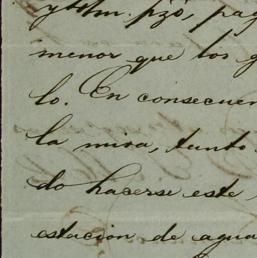 menor que los g
lo. En consecuen
la mira, tanto
do hacerse este
estacion de agua